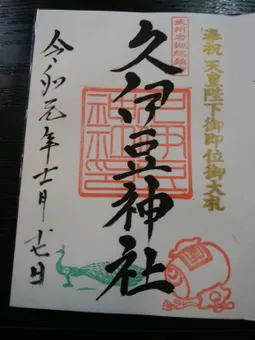 奉祝 天皇陛下御即位御大礼
武州岩槻総鎮守
久伊豆神社
令和元年十一月十七日